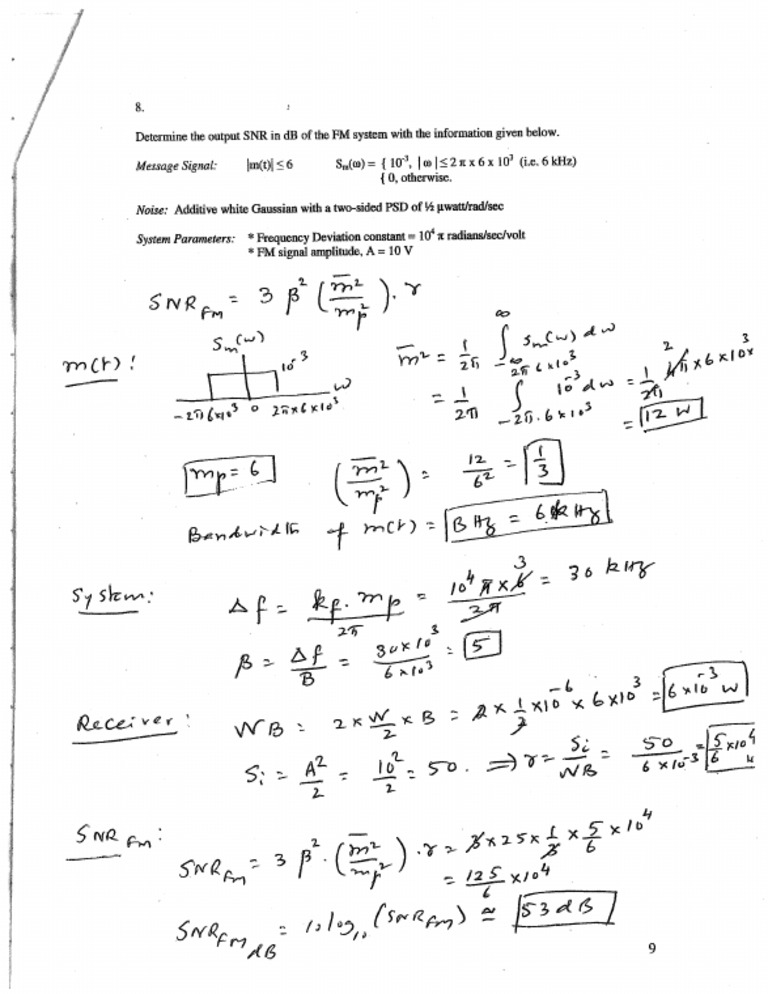 8.
Determine the output SNR in dB of the FM system with the information given below.
Message Signal: |m(t)| ≤ 6 Sm(ω) = { 10⁻³, | ω | ≤ 2 π x 6 x 10³ (i.e. 6 kHz)
{ 0, otherwise.
Noise: Additive white Gaussian with a two-sided PSD of ½ μwatt/rad/sec
System Parameters: * Frequency Deviation constant = 10⁴ π radians/sec/volt
* FM signal amplitude, A = 10 V
SNR FM = 3 β² (m̅² / mp²) . γ
m(t): Sm(ω) m̅² = 1/2π ∫_{-∞}^{∞} Sm(ω) dω
10⁻³ ω
-2π6x10³ 0 2πx6x10³
= 1/2π ∫_{-2π.6x10³}^{2π6x10³} 10⁻³ dω = 1/2π 4π x 6 x 10³ x
2
= 12 W
mp = 6 (m̅² / mp²) = 12/6² = 1/3
Bandwidth of m(t) = B Hz = 6 kHz
System: Δf = kf. mp / 2π = 10⁴ π x 6 / 2π = 30 kHz
3
β = Δf / B = 30x10³ / 6x10³ = 5
Receiver: NB = 2 x N/2 x B = 2 x 1/2 x 10⁻⁶ x 6x10³ = 6x10⁻³ W
Si = A²/2 = 10²/2 = 50. ⇒ γ = Si/NB = 50 / 6x10⁻³ = 5/6 x10⁴
SNR FM:
SNR FM = 3 β². (m̅² / mp²) . γ = 3 x 25 x 1/3 x 5/6 x 10⁴
= 125/6 x10⁴
SNR FM dB = 10 log₁₀ (SNR FM) ≅ 53 dB
9